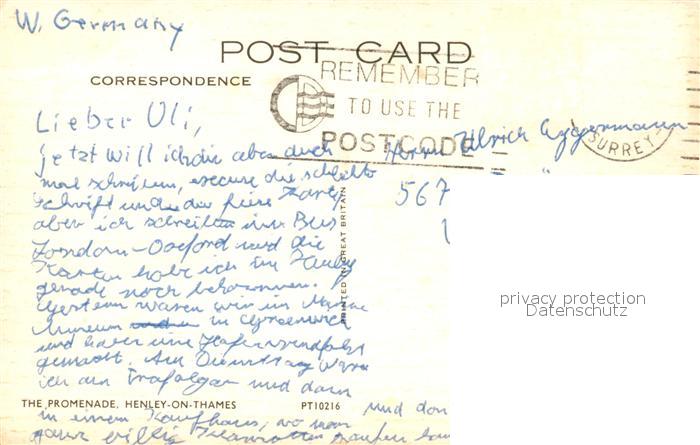 W. Germany
POST CARD
CORRESPONDENCE
REMEMBER
TO USE THE
POSTCODE
SURREY
Lieber Uli,
jetzt will ich dir aber doch
mal schreiben, excuse die schlechte
Schrift und die
aber ich schreibe im Bus
London-Oxford und die
Karte habe ich in Henley
gerade noch bekommen.
Gestern waren wir im
Museum in Greenwich
und haben eine Hafenrundfahrt
gemacht. Am Dienstag war
ich am Trafalgar und dann
in einem Kaufhaus, wo man
ganz billig kaufen
und
Herrn Ulrich
567
PRINTED IN GREAT BRITAIN
privacy protection
Datenschutz
THE PROMENADE, HENLEY-ON-THAMES
PT10216